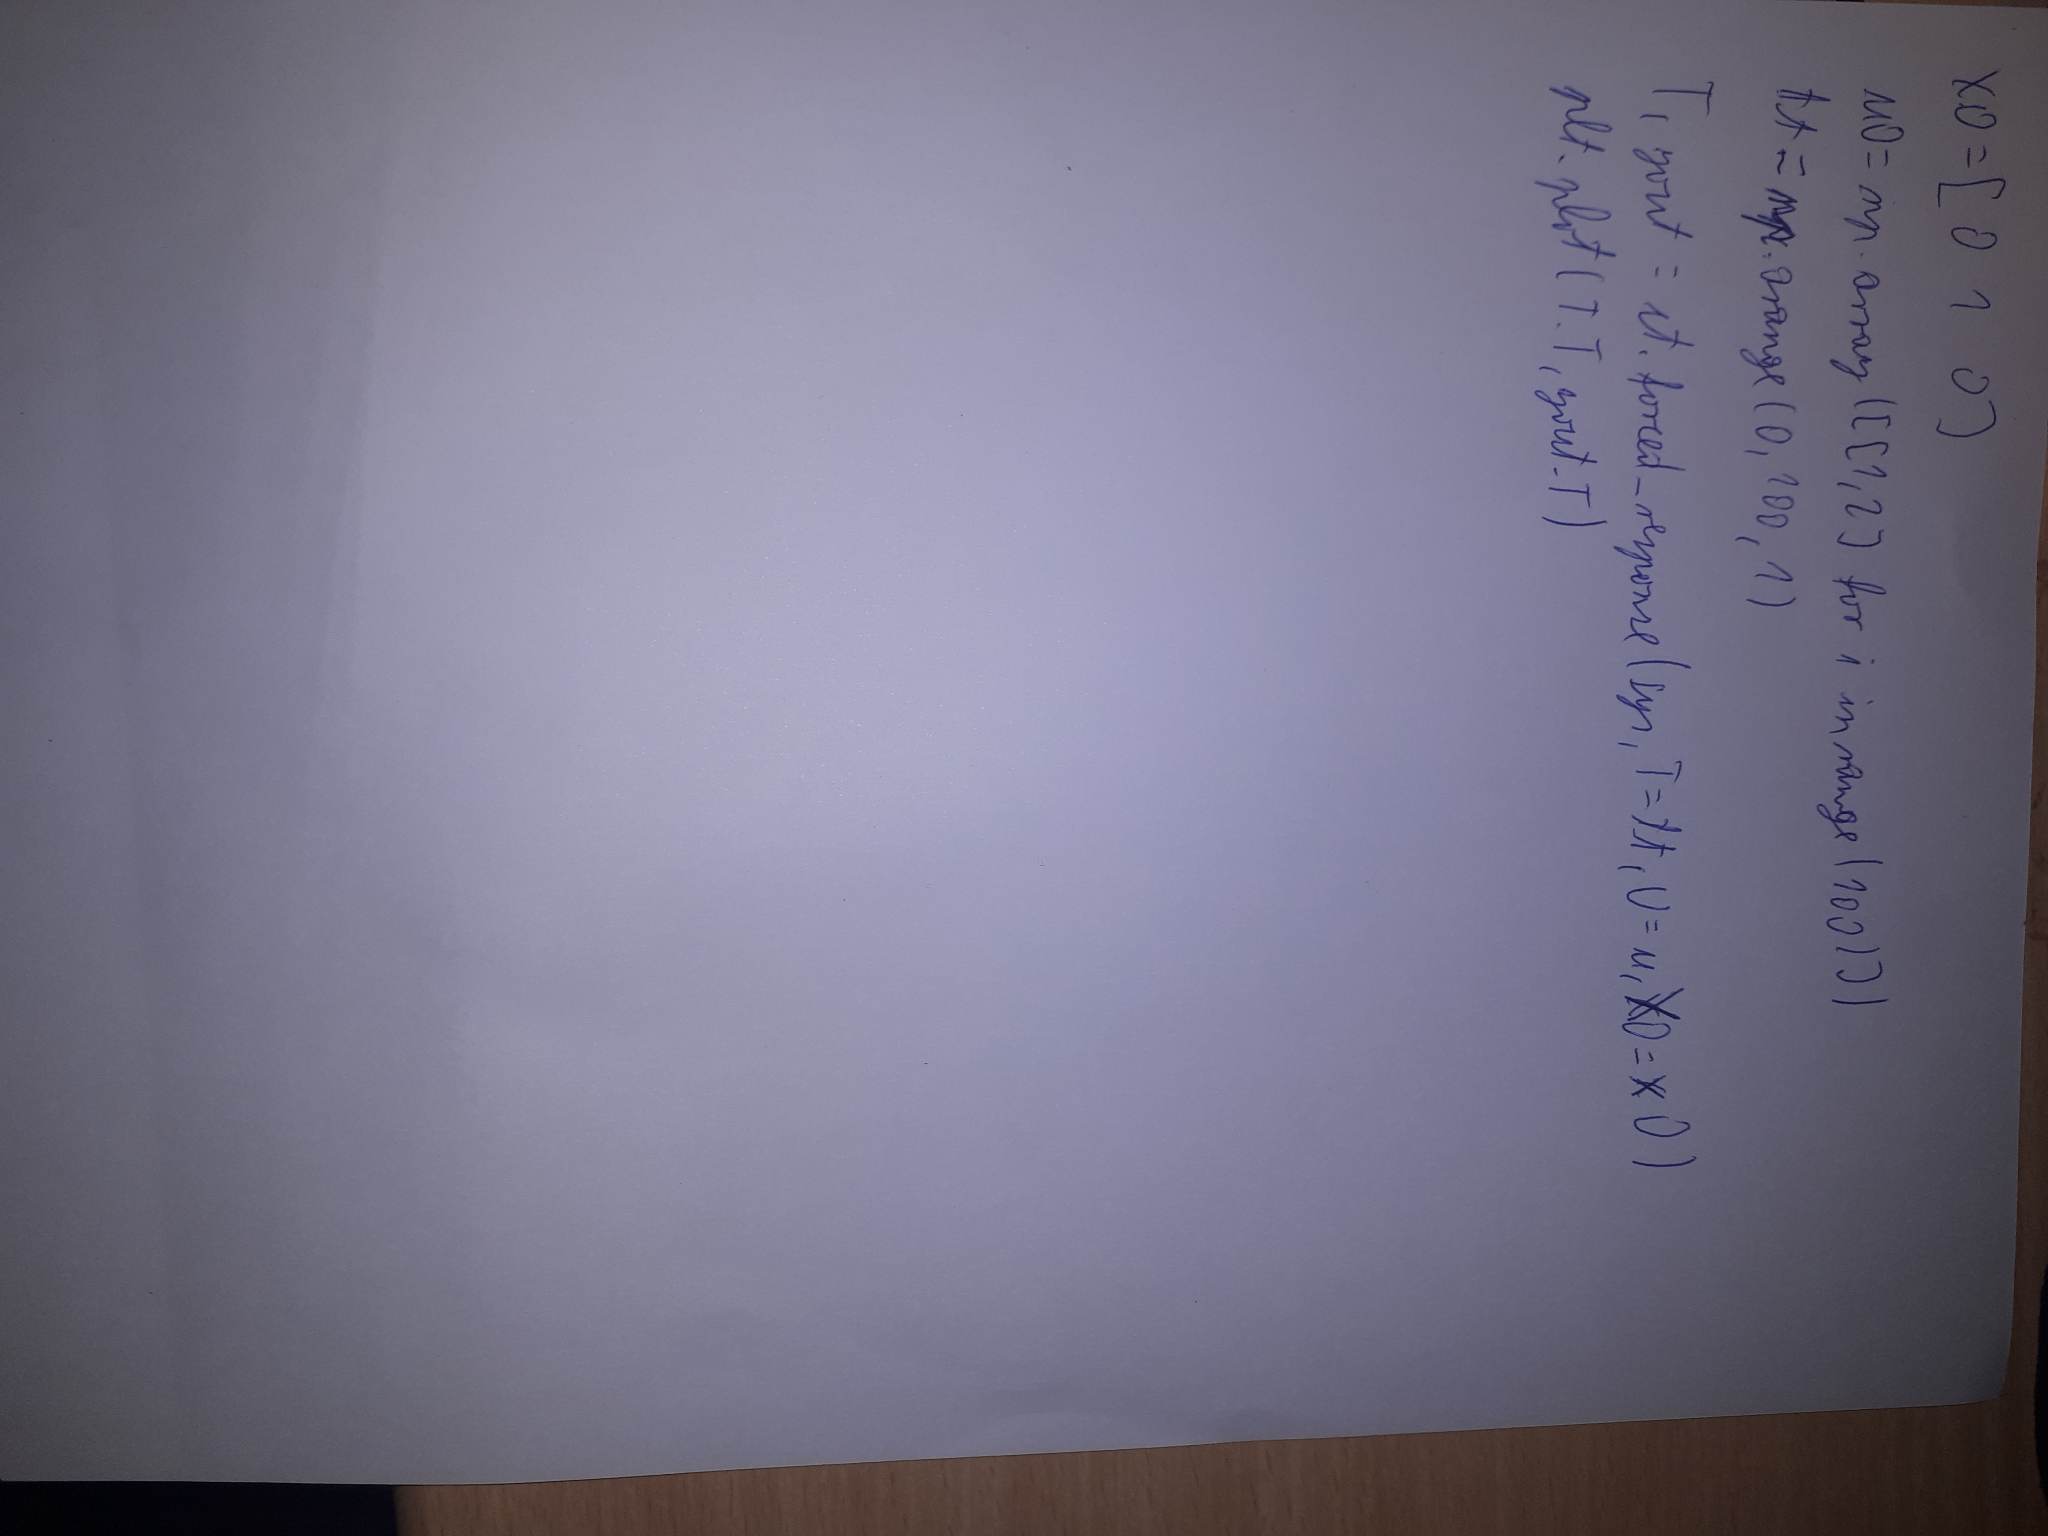 x0=[0 1 0]
u0= np.array([[1,2] for i in range(100)])
tt = np.arange(0,100,1)
T, yout = ct.forced_response(sys, T=tt, U=u, X0=x0)
plt.plot(T.T, yout.T)